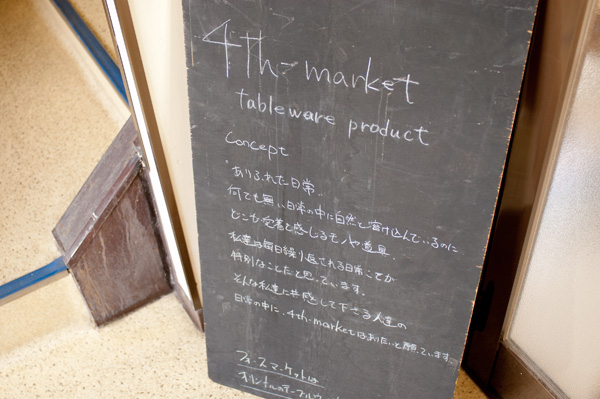 4th-market
tableware product
Concept
"ありふれた日常"
何でも無い日常の中に自然と溶け込んでいるのに
どこか愛着を感じるモノや道具.
私達は毎日繰り返される日常こそが
特別なことだと思っています.
そんな私達に共感して下さる人達の
日常の中に、4th-marketはありたいと願っています.
フォースマーケットは
オリジナルのテーブルウ